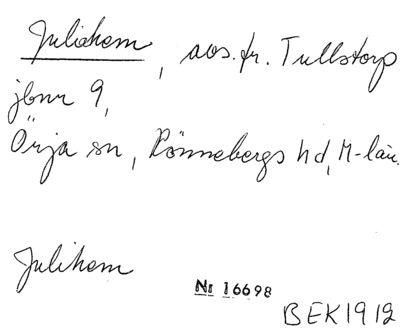 Juliehem, avs. fr. Tullstorp
jbnr 9,
Örja sn, Rönnebergs hd, M-län.
Julihem
Nr 16698
BEK1912